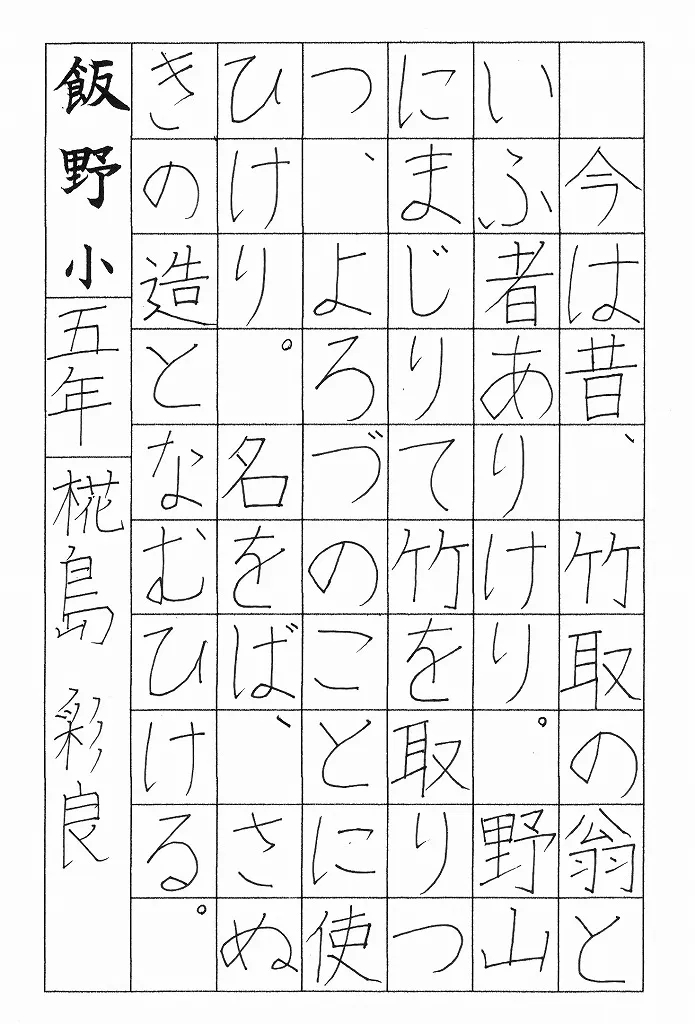 今は昔、竹取の翁と
いふ者ありけり。野山
にまじりて竹を取りつ
つ、よろづのことに使
ひけり。名をば、さぬ
きの造となむひける。
飯野小 五年 椛島 彩良